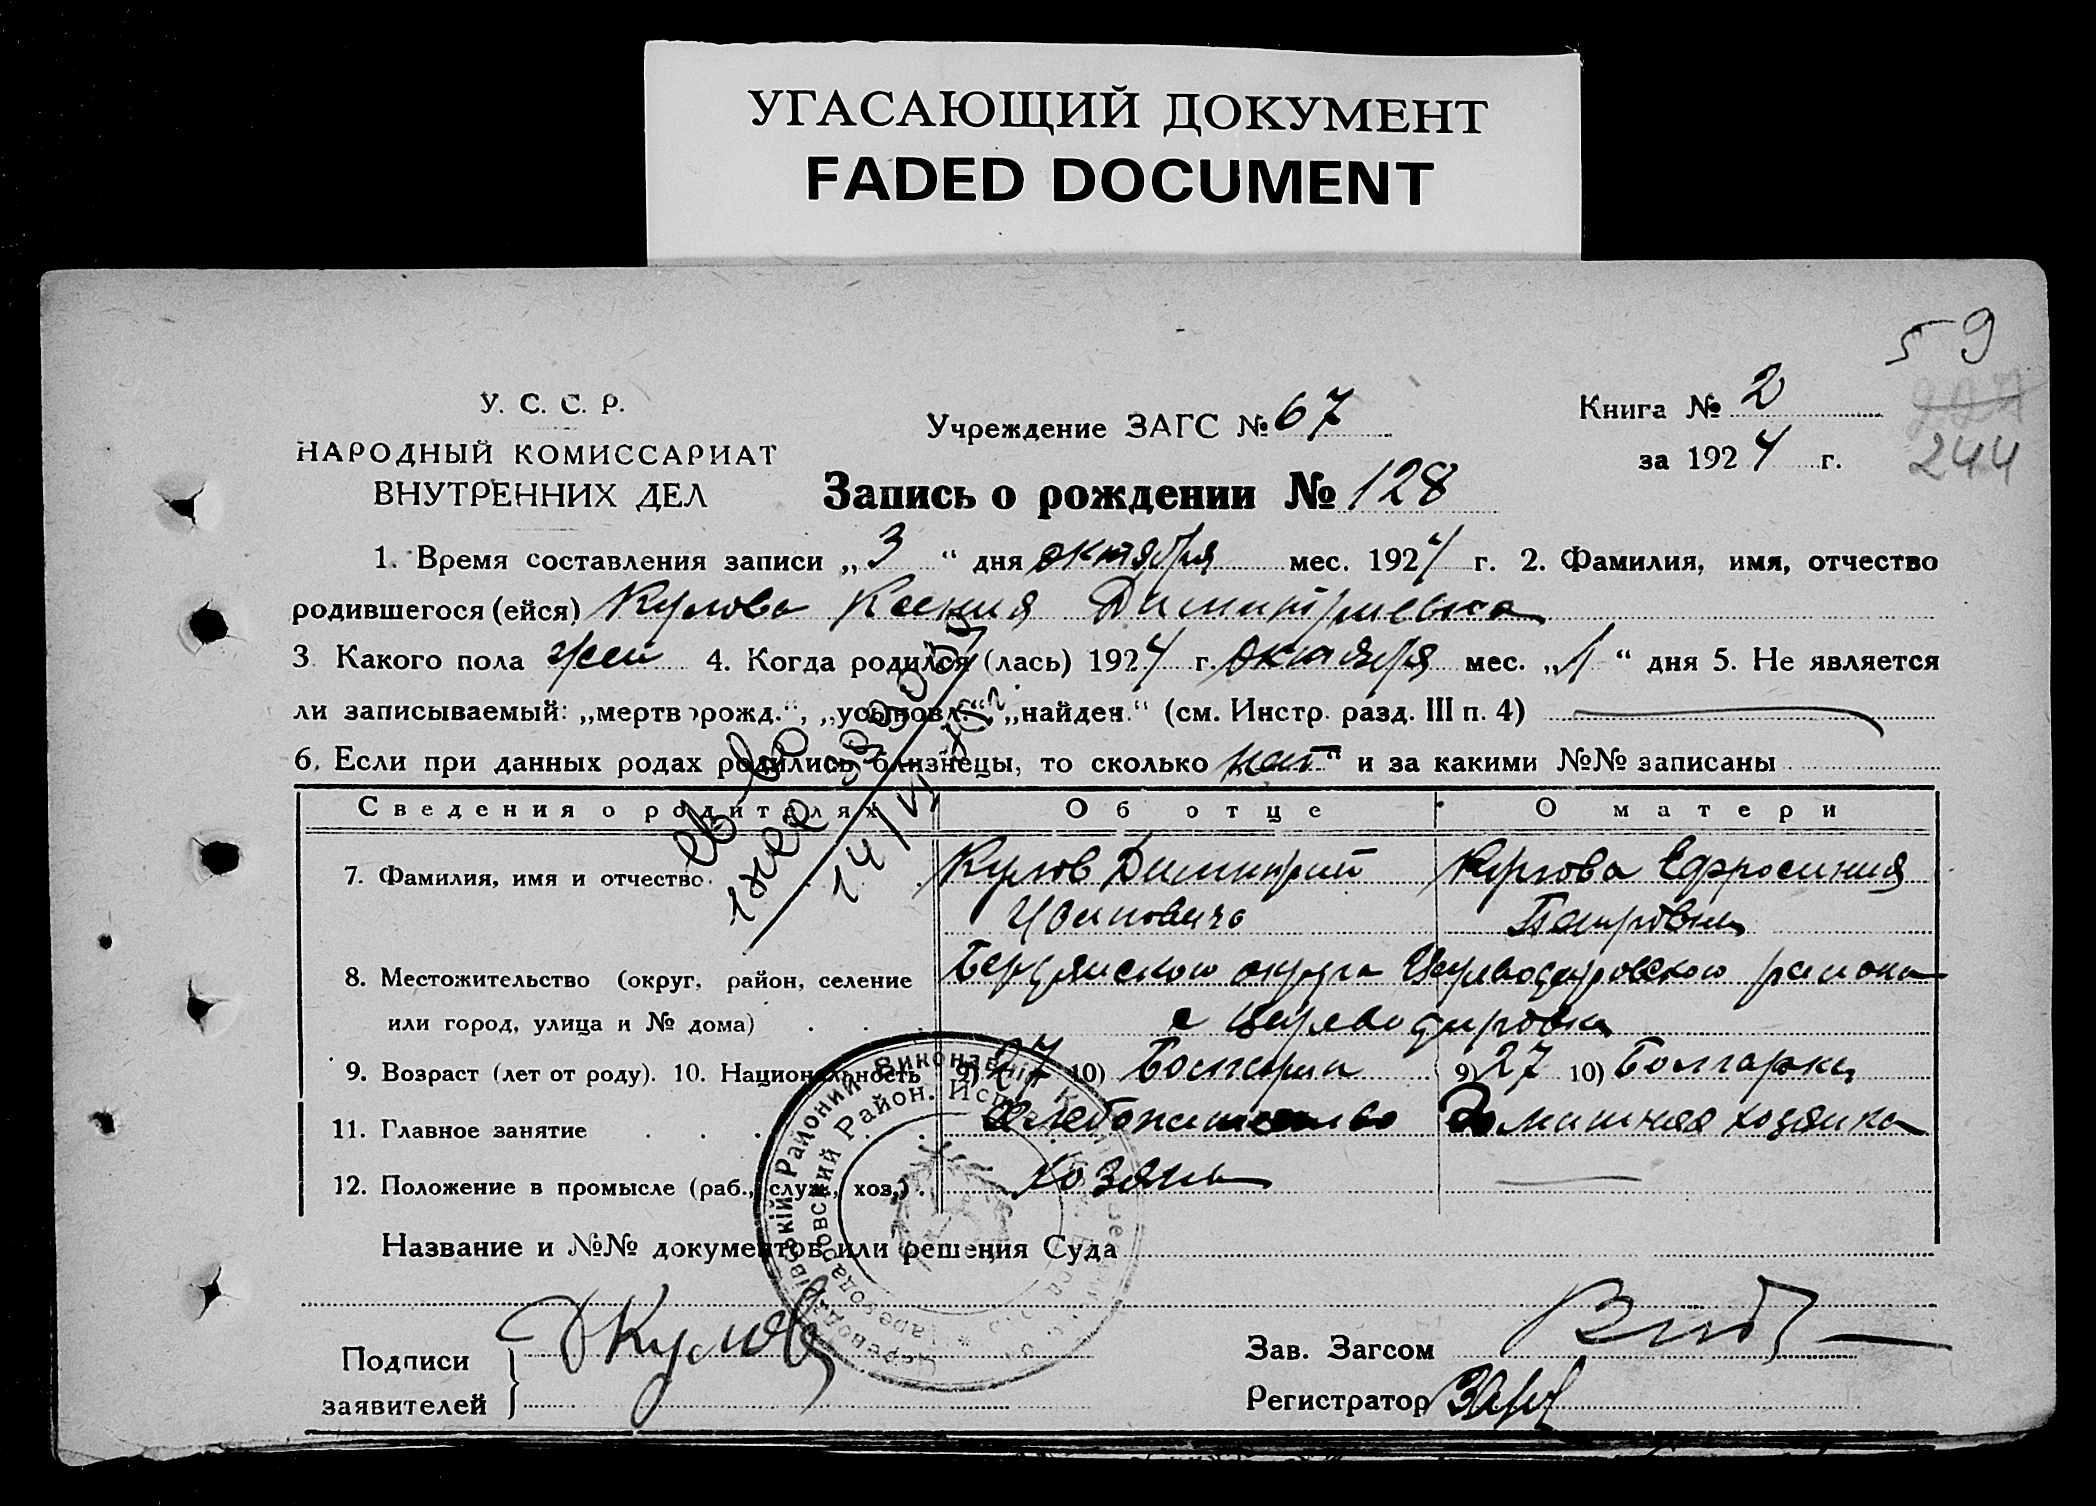 УГАСАЮЩИЙ ДОКУМЕНТ
FADED DOCUMENT
59
У. С. С. Р.
НАРОДНЫЙ КОМИССАРИАТ
ВНУТРЕННИХ ДЕЛ
Учреждение ЗАГС № 67
Книга № 2
за 1924 г.
244
Запись о рождении № 128
1. Время составления записи „3“ дня октября мес. 1924 г. 2. Фамилия, имя, отчество
родившегося (ейся) Кулова Ксения Димитриевна
3 Какого пола жен 4. Когда родился (лась) 1924 г. октября мес. „1“ дня 5. Не является
ли записываемый: „мертворожд.“, „усыновл.“ „найден.“ (см. Инстр. разд. III п. 4)
6. Если при данных родах родились близнецы, то сколько „нет“ и за какими №№ записаны
Сведения о родителях Об отце О матери
7. Фамилия, имя и отчество Кулов Димитрий Кулова Ефросиния
Иванович Петровна
8. Местожительство (округ, район, селение Бердянского округа Цареводаровского района
или город, улица и № дома) с Цареводаровка
9. Возраст (лет от роду). 10. Национальность 9) 27 10) Болгарин 9) 27 10) Болгарка
11. Главное занятие Хлебопашество Домашняя хозяйка
12. Положение в промысле (раб., служ., хоз.) Хозяин
Название и №№ документов или решения Суда
Подписи
заявителей
ДКулов
Зав. Загсом
Регистратор